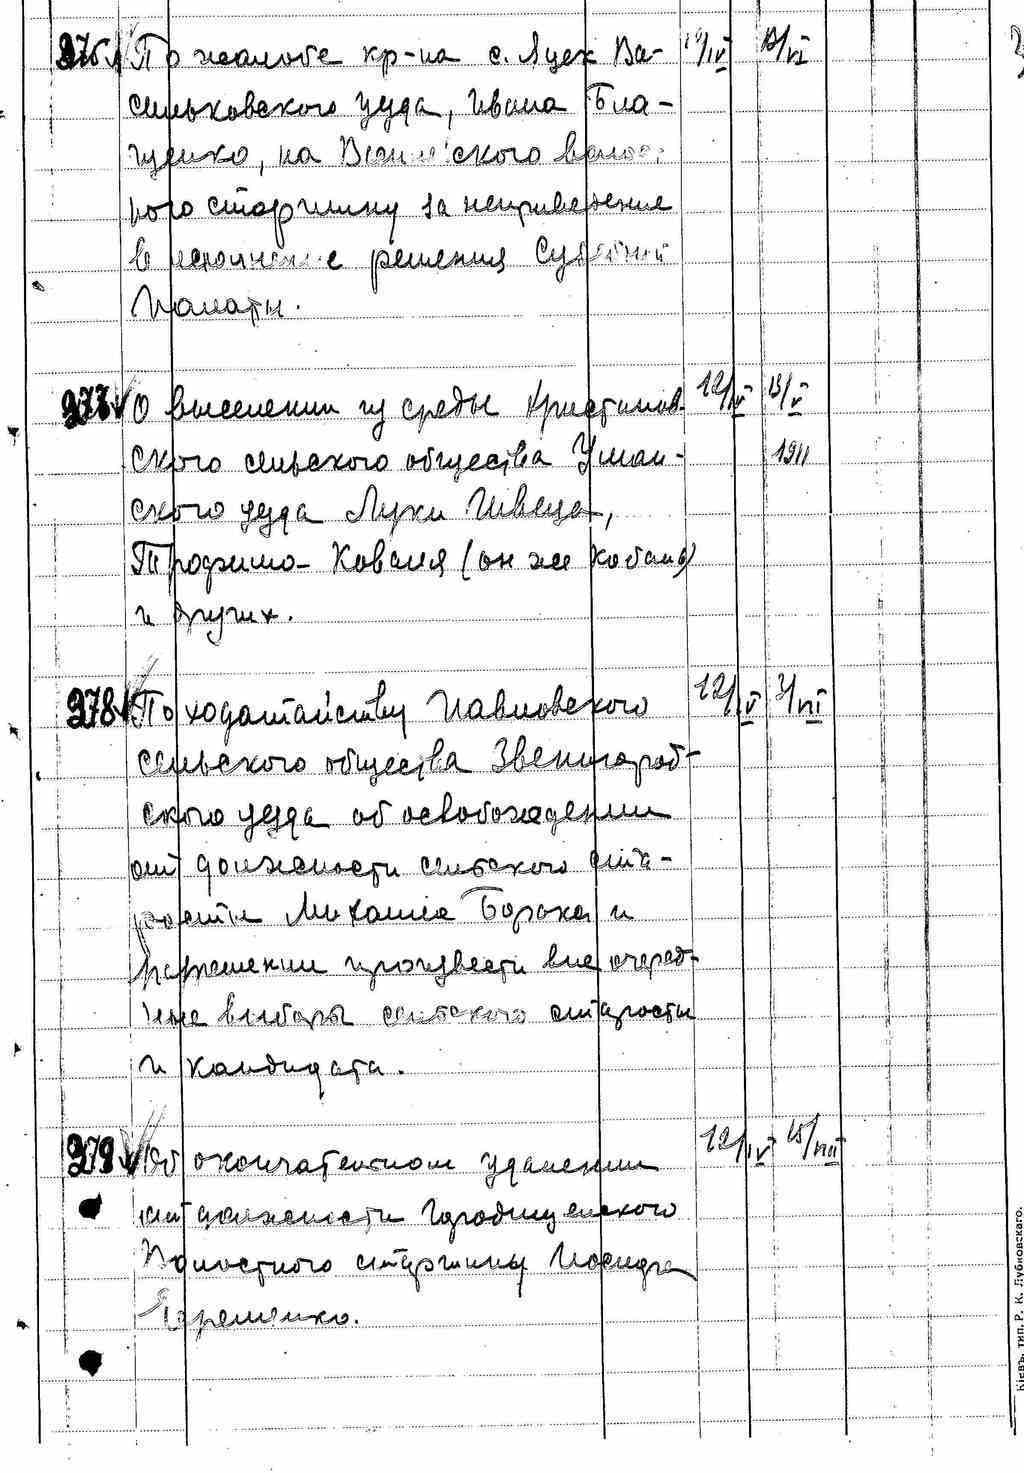 276 По жалобе кр-на с. Яцек Ва- IV VI
сильковского уезда, Ивана Бла-
щенко, на ского волос
ного старшину за неприведение
в исполнение решения Судебной
Палаты.
277 О выселении из среды Кристинов- 12/IV 13/V
ского сельского общества Уман- 1911
ского уезда Луки Швеца,
Трофима Коваля (он же Кобань)
и других.
278 По ходатайству Павловского 12/IV 3/VI
сельского общества Звенигород-
ского уезда об освобождении
от должности сельского ста-
росты Михаила Бороха и
разрешении произвести внеочеред-
ные выборы сельского старосты
и кандидата.
279 Об окончательном удалении 12/IV 15/VIII
от должности Городищенского
Волостного старшины Иосифа
Яременко.
Кіевъ, тип. Р. К. Лубковскаго.